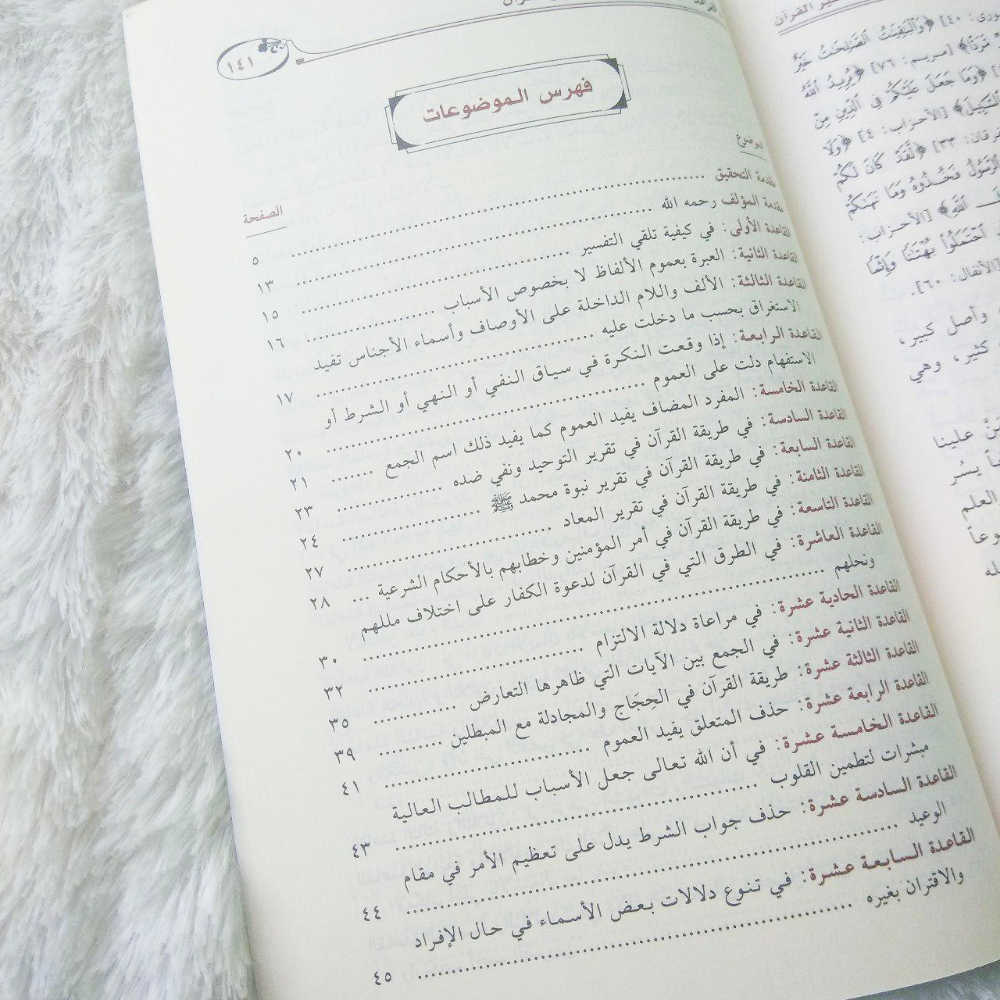 ١٤١
فهرس الموضوعات
الموضوع
الصفحة
مقدمة التحقيق ٥
مقدمة المؤلف رحمه الله ١٣
القاعدة الأولى: في كيفية تلقي التفسير ١٥
القاعدة الثانية: العبرة بعموم الألفاظ لا بخصوص الأسباب ١٦
القاعدة الثالثة: الألف واللام الداخلة على الأوصاف وأسماء الأجناس تفيد
الاستغراق بحسب ما دخلت عليه ١٧
القاعدة الرابعة: إذا وقعت النكرة في سياق النفي أو النهي أو الشرط أو
الاستفهام دلت على العموم ٢٠
القاعدة الخامسة: المفرد المضاف يفيد العموم كما يفيد ذلك اسم الجمع ٢١
القاعدة السادسة: في طريقة القرآن في تقرير التوحيد ونفي ضده ٢٣
القاعدة السابعة: في طريقة القرآن في تقرير نبوة محمد ﷺ ٢٤
القاعدة الثامنة: في طريقة القرآن في تقرير المعاد ٢٧
القاعدة التاسعة: في طريقة القرآن في أمر المؤمنين وخطابهم بالأحكام الشرعية ... ٢٨
القاعدة العاشرة: في الطرق التي في القرآن لدعوة الكفار على اختلاف مللهم
ونحلهم ٣٠
القاعدة الحادية عشرة: في مراعاة دلالة الالتزام ٣٢
القاعدة الثانية عشرة: في الجمع بين الآيات التي ظاهرها التعارض ٣٥
القاعدة الثالثة عشرة: طريقة القرآن في الحِجَاج والمجادلة مع المبطلين ٣٩
القاعدة الرابعة عشرة: حذف المتعلق يفيد العموم ٤١
القاعدة الخامسة عشرة: في أن الله تعالى جعل الأسباب للمطالب العالية
مبشرات لتطمين القلوب ٤٣
القاعدة السادسة عشرة: حذف جواب الشرط يدل على تعظيم الأمر في مقام
الوعيد ٤٤
القاعدة السابعة عشرة: في تنوع دلالات بعض الأسماء في حال الإفراد
والاقتران بغيره ٤٥
القرآن
٤٠] ﴿وَالْبَاقِيَاتُ الصَّالِحَاتُ خَيْرٌ
[مريم: ٧٦] ﴿يُرِيدُ اللَّهُ
﴿وَمَا جَعَلَ عَلَيْكُمْ فِي الدِّينِ مِنْ
[الأحزاب: ٤] ﴿وَلَا
٣٣] ﴿لَقَدْ كَانَ لَكُمْ
الرَّسُولُ فَخُذُوهُ وَمَا نَهَاكُمْ
[الأحزاب:
احْتَمَلُوا بُهْتَانًا وَإِثْمًا
[الأنفال: ٦٠].
وأصل كبير،
كثير، وهي
علينا
يسر
العلم